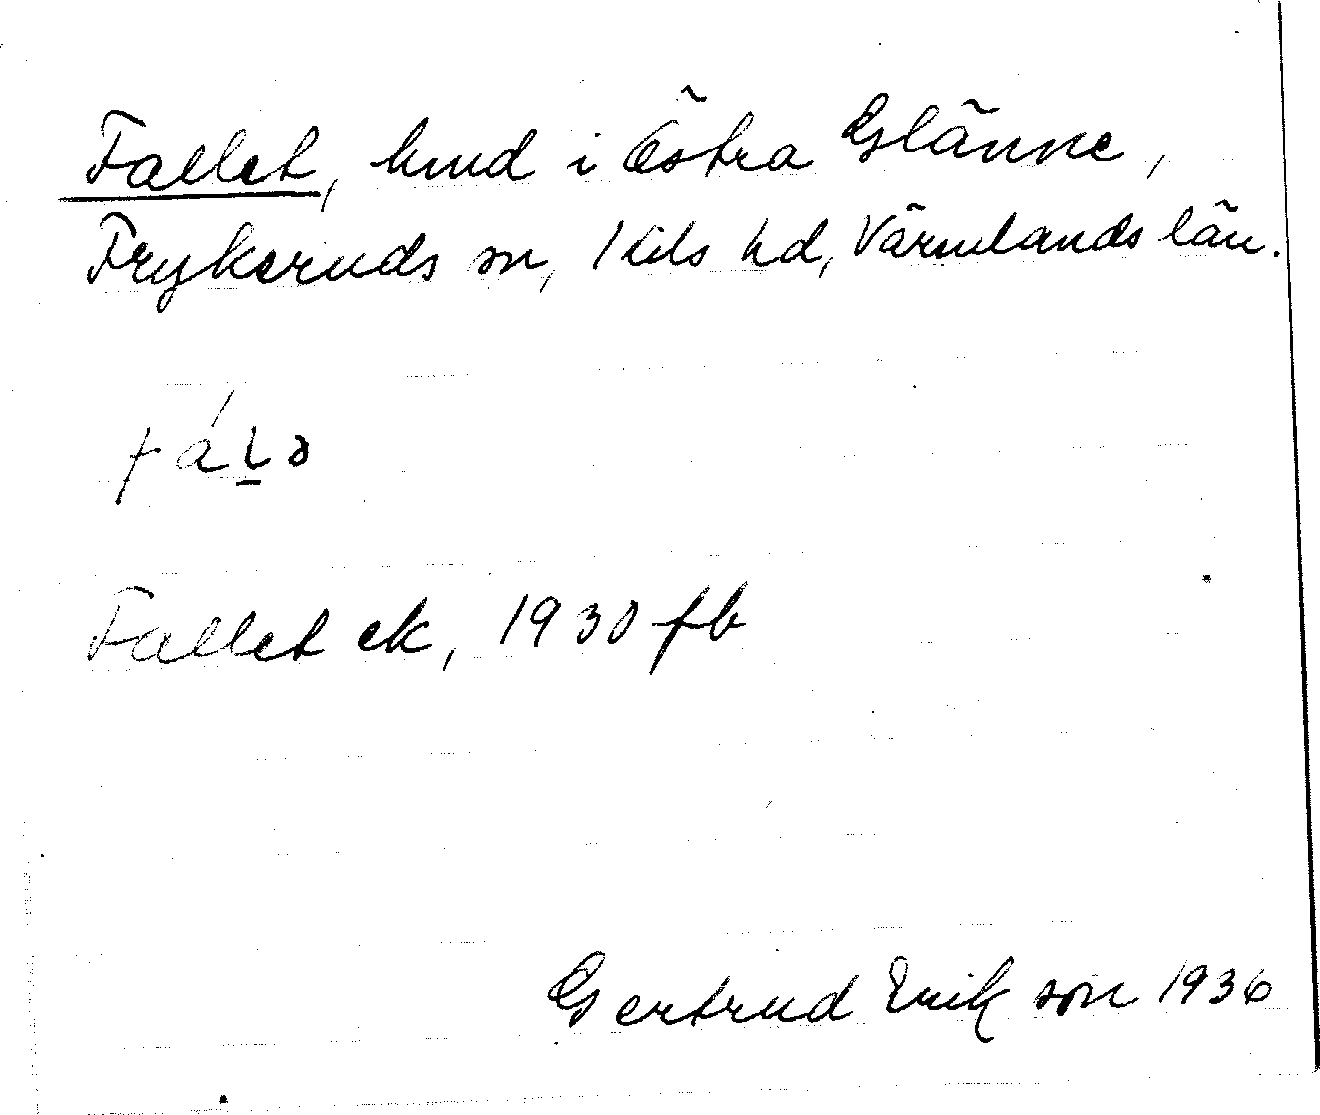 Fallet, hmd i Östra Glänne,
Frykeruds sn, Kils hd, Värmlands län.
fáḷə
Fallet ek, 1930 fb
Gertrud Erikson 1936